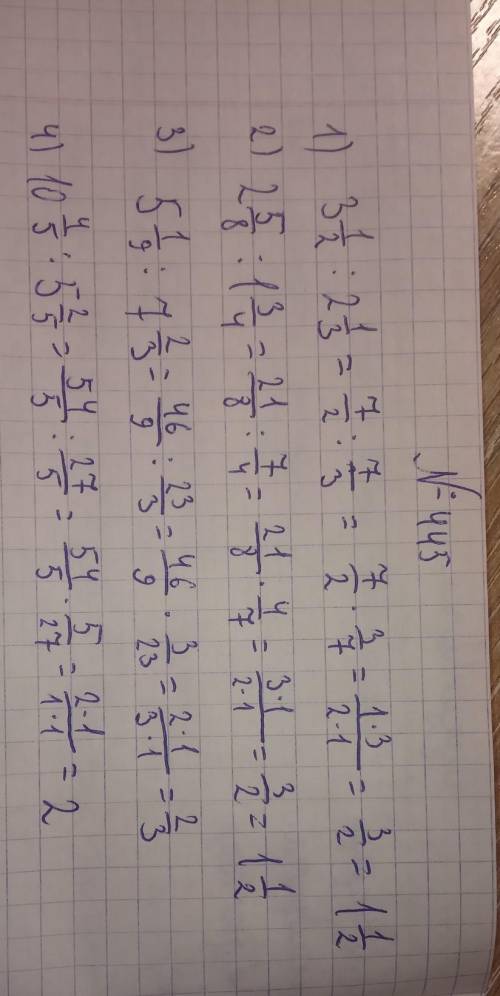 № 445
1) 3 1/2 : 2 1/3 = 7/2 : 7/3 = 7/2 · 3/7 = 1·3/2·1 = 3/2 = 1 1/2
2) 2 5/8 : 1 3/4 = 21/8 : 7/4 = 21/8 · 4/7 = 3·1/2·1 = 3/2 = 1 1/2
3) 5 1/9 : 7 2/3 = 46/9 : 23/3 = 46/9 · 3/23 = 2·1/3·1 = 2/3
4) 10 4/5 : 5 2/5 = 54/5 : 27/5 = 54/5 · 5/27 = 2·1/1·1 = 2